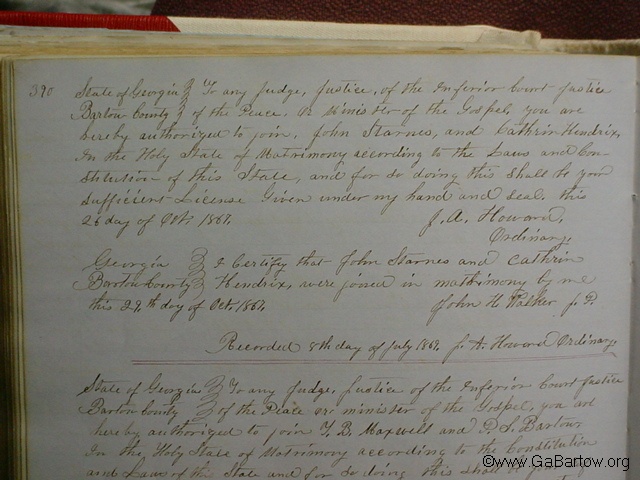 390 State of Georgia To any Judge, Justice, of the Inferior Court Justice
Bartow County of the Peace. Or Minister of the Gospel, you are
hereby authorized to join, John Starnes, and Cathrin Hendrix,
In the Holy State of Matrimony according to the Laws and Con-
stitution of this State, and for so doing this shall be your
sufficient License Given under my hand and seal. this
26 day of Oct. 1867. J. A. Howard,
Ordinary,
Georgia I Certify that John Starnes and Cathrin
Bartow County Hendrix, were joined in matrimony by me
this 27th day of Oct. 1867. John H. Walker J. P.
Recorded 8th day of July J. A. Howard Ordinary
State of Georgia To any Judge, Justice of the Inferior Court Justice
Bartow County of the Peace or minister of the Gospel, you are
hereby authorized to join T. B. Maxwell and P. S. Bartow,
In the Holy State of Matrimony according to the Constitution
and Laws of the State and for so doing this shall be
©www.GaBartow.org